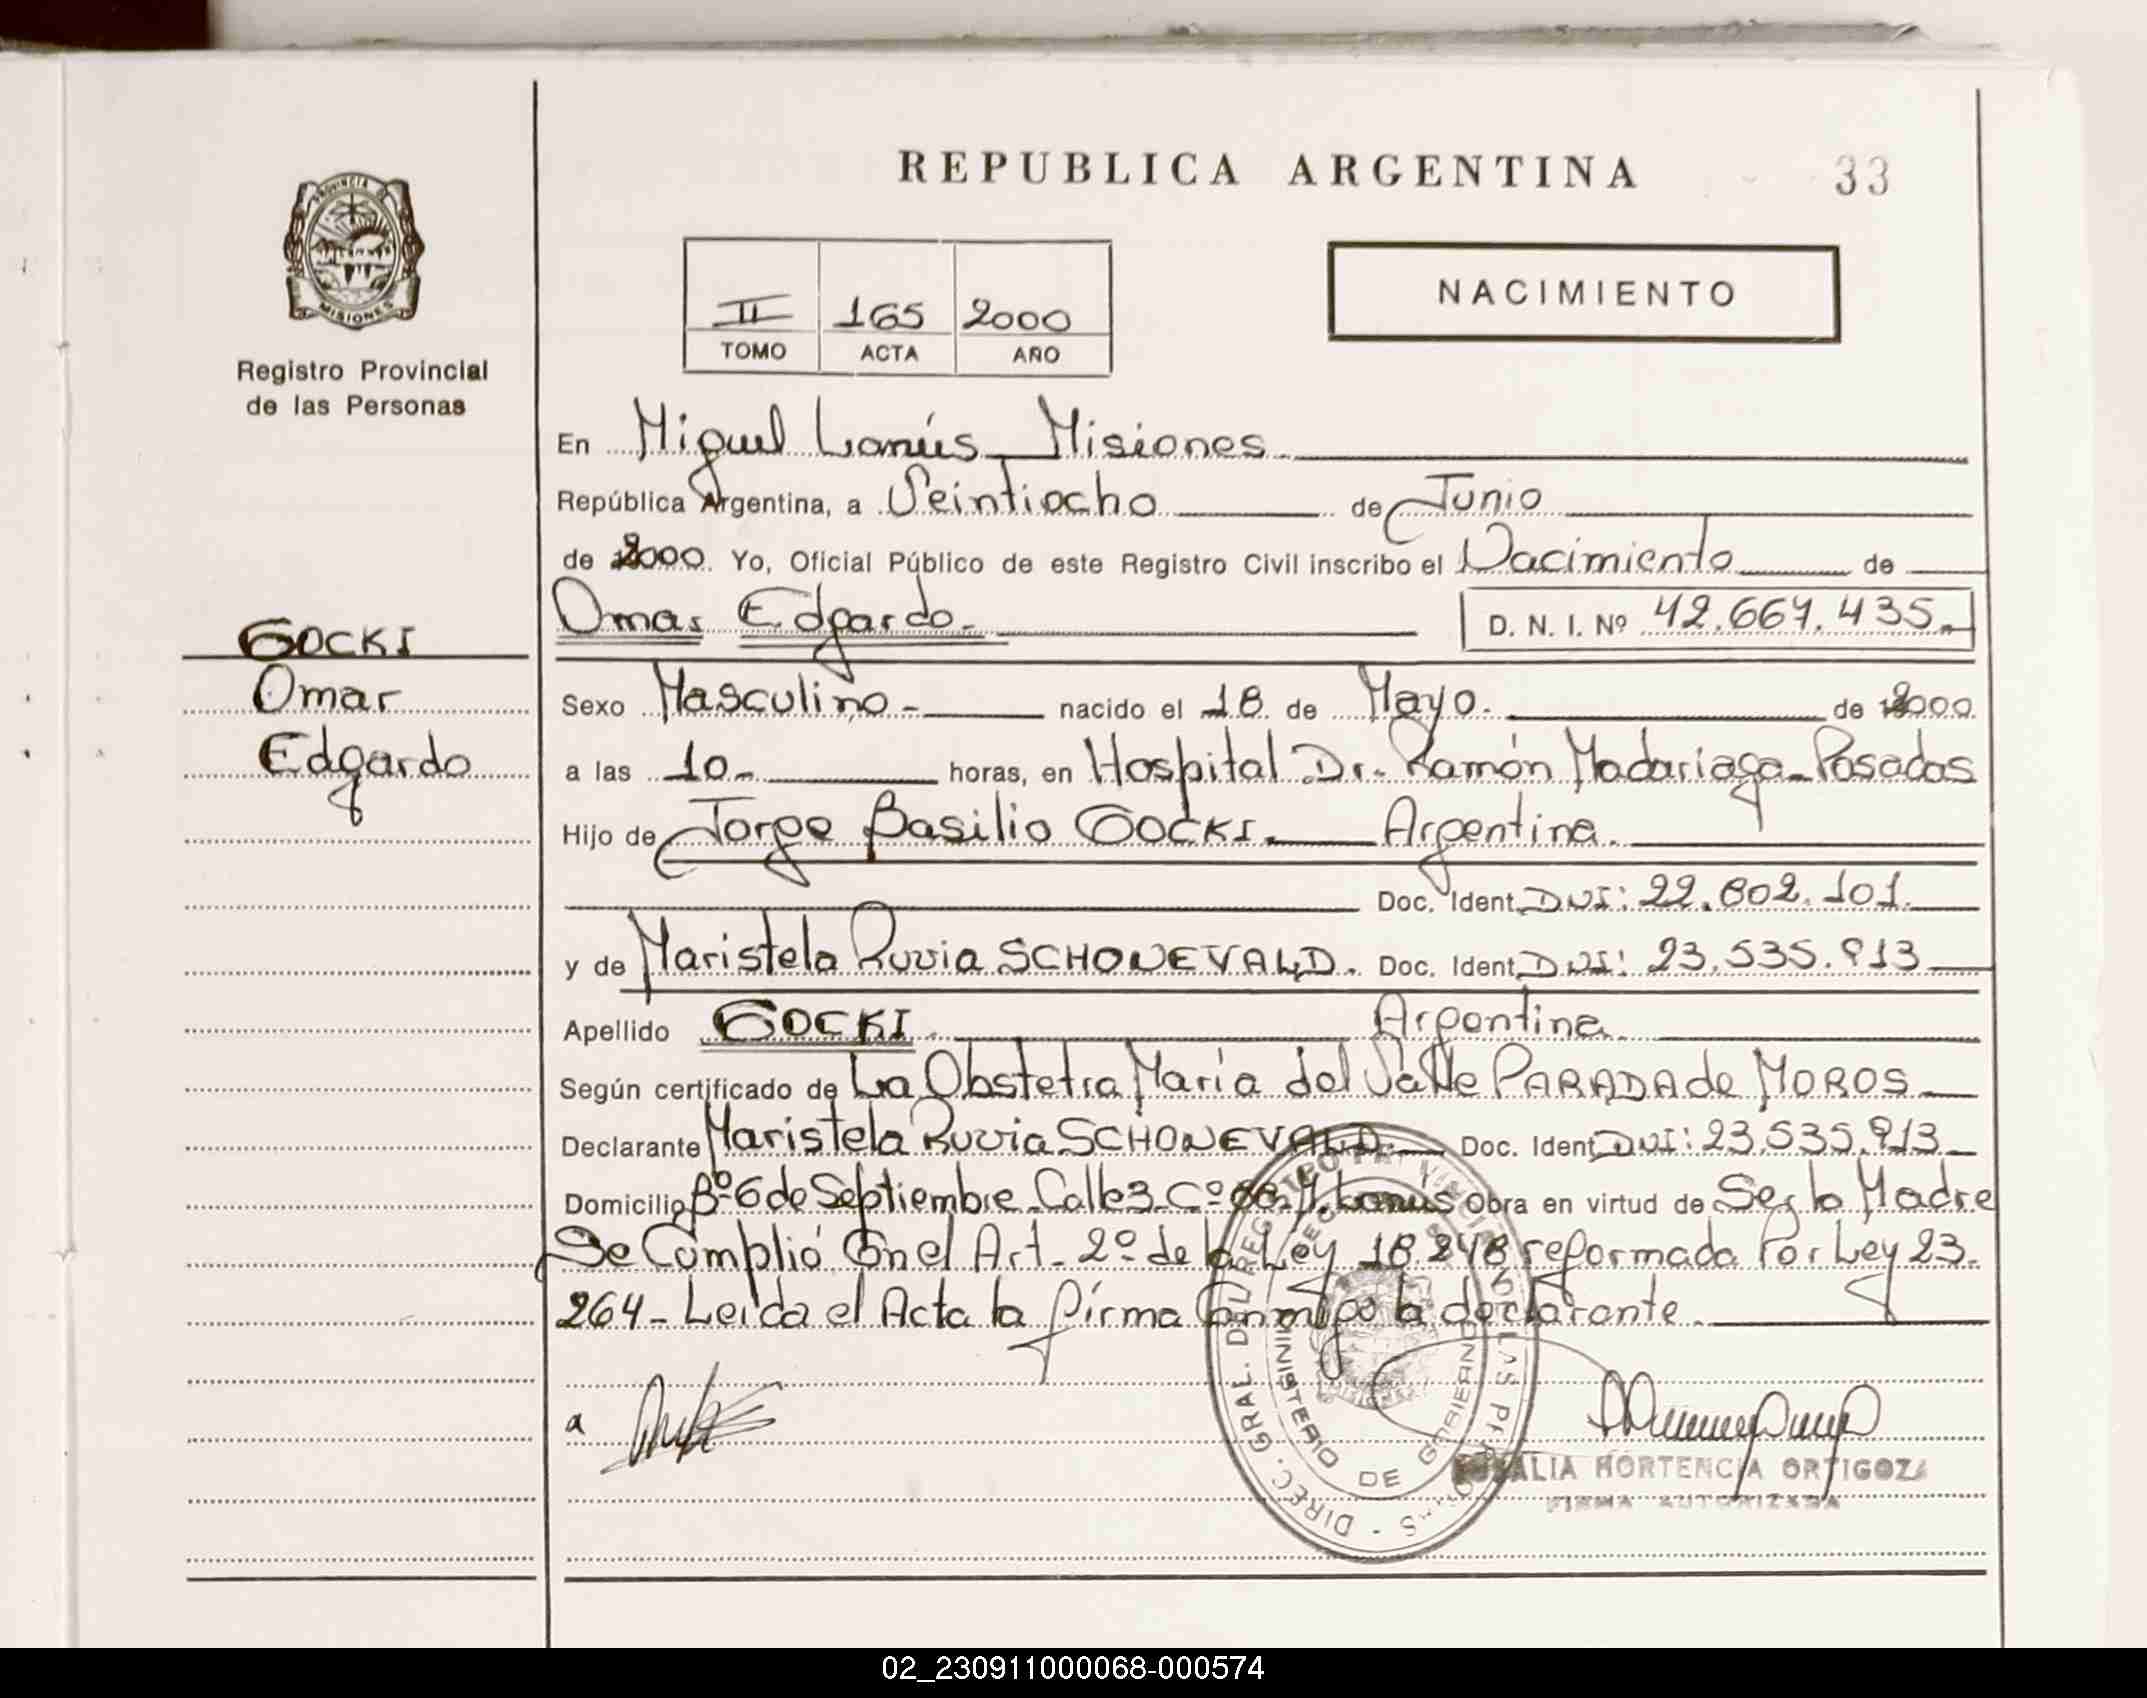 REPUBLICA ARGENTINA
33
PROVINCIA DE
MISIONES
Registro Provincial
de las Personas
NACIMIENTO
II 165 2000
TOMO ACTA AÑO
En Miguel Lanús Misiones
República Argentina, a Veintiocho de Junio
de 2000. Yo, Oficial Público de este Registro Civil inscribo el Nacimiento de
Omar Edgardo. D. N. I. Nº 42.667.435.
GOCKI
Omar
Edgardo
Sexo Masculino nacido el 18 de Mayo. de 2000
a las 10 horas, en Hospital Dr. Ramón Madariaga Posadas
Hijo de Jorge Basilio GOCKI. Argentina.
Doc. Ident. DNI: 22.802.101.
y de Maristela Ruvia SCHONEVALD. Doc. Ident. DNI: 23.535.913
Apellido GOCKI. Argentina
Según certificado de La Obstetra María del Valle PARADA de MOROS
Declarante Maristela Ruvia SCHONEVALD. Doc. Ident. DNI: 23.535.913
Domicilio Bº 6 de Septiembre Calle 3 Cº M. Lanús Obra en virtud de Ser la Madre
Se Cumplió Con el Art. 2º de la Ley 18.248 reformada Por Ley 23.
264 - Leída el Acta la firma Conmigo la declarante.
DIREC. GRAL. DEL REGISTRO PROVINCIAL DE LAS PERSONAS
MINISTERIO DE GOBIERNO
ROSALIA HORTENCIA ORTIGOZA
FIRMA AUTORIZADA
02_230911000068-000574